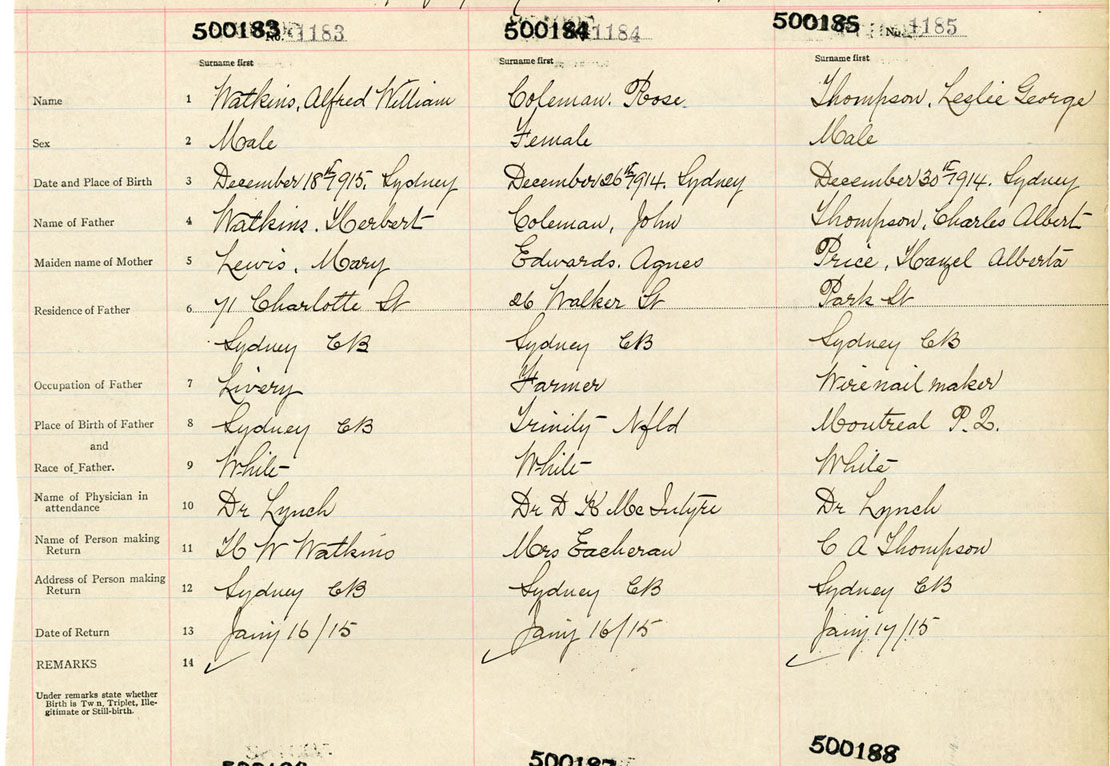 500183 No. 1183
500184 1184
500185 No. 1185
Surname first
Surname first
Surname first
Name 1 Watkins, Alfred William
Coleman. Rose.
Thompson, Leslie George
Sex 2 Male
Female
Male
Date and Place of Birth 3 December 18th 1915. Sydney
December 26th 1914. Sydney
December 30th 1914. Sydney
Name of Father 4 Watkins. Herbert
Coleman, John
Thompson, Charles Albert
Maiden name of Mother 5 Lewis, Mary
Edwards. Agnes
Price, Hazel Alberta
Residence of Father 6 71 Charlotte St
26 Walker St
Park St
Sydney CB
Sydney CB
Sydney CB
Occupation of Father 7 Livery
Farmer
Wire nail maker
Place of Birth of Father 8 Sydney CB
Trinity Nfld
Montreal P.Q.
and
Race of Father. 9 White
White
White
Name of Physician in
attendance 10 Dr Lynch
Dr D K McIntyre
Dr Lynch
Name of Person making
Return 11 H W Watkins
Mrs Eacheran
C A Thompson
Address of Person making
Return 12 Sydney CB
Sydney CB
Sydney CB
Date of Return 13 Jany 16/15
Jany 16/15
Jany 17/15
REMARKS 14
Under remarks state whether
Birth is Tw n, Triplet, Ille-
gitimate or Still-birth.
500188